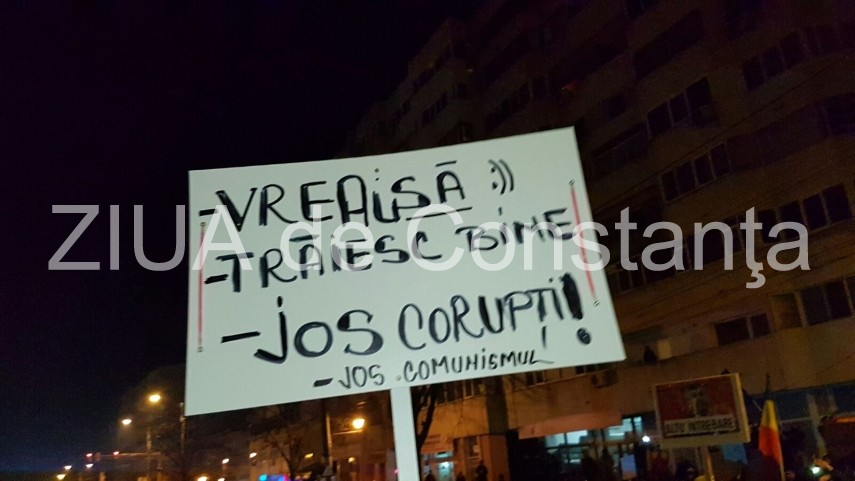 -VREAISĂ :))
-TRĂIESC BINE
-JOS CORUPȚII!
-JOS.COMUNISMUL
ZIUA de Constanţa
ALTU' INTREBARE